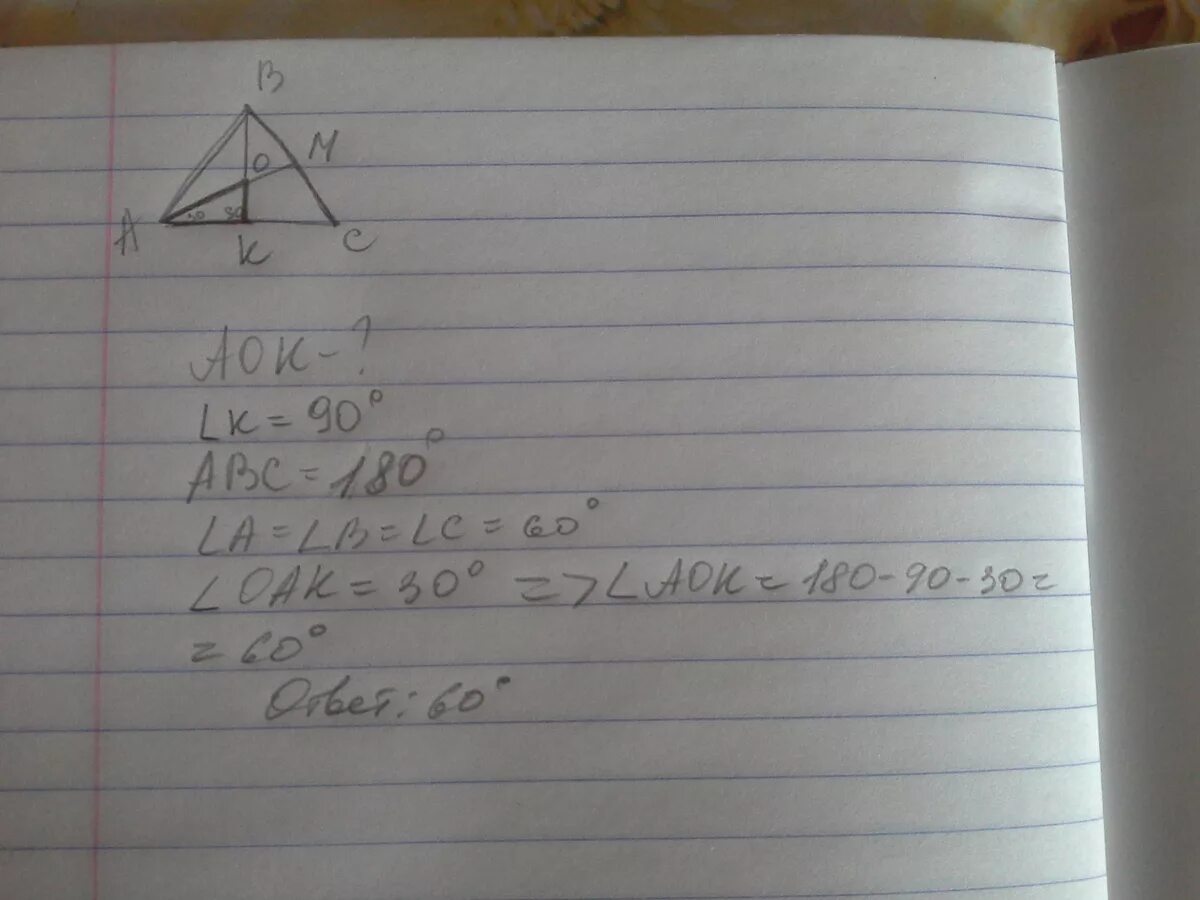 B
M
O
A
K
C
AOK - ?
∠K = 90°
ABC = 180°
∠A = ∠B = ∠C = 60°
∠OAK = 30° => ∠AOK = 180 - 90 - 30 =
= 60°
Ответ: 60°